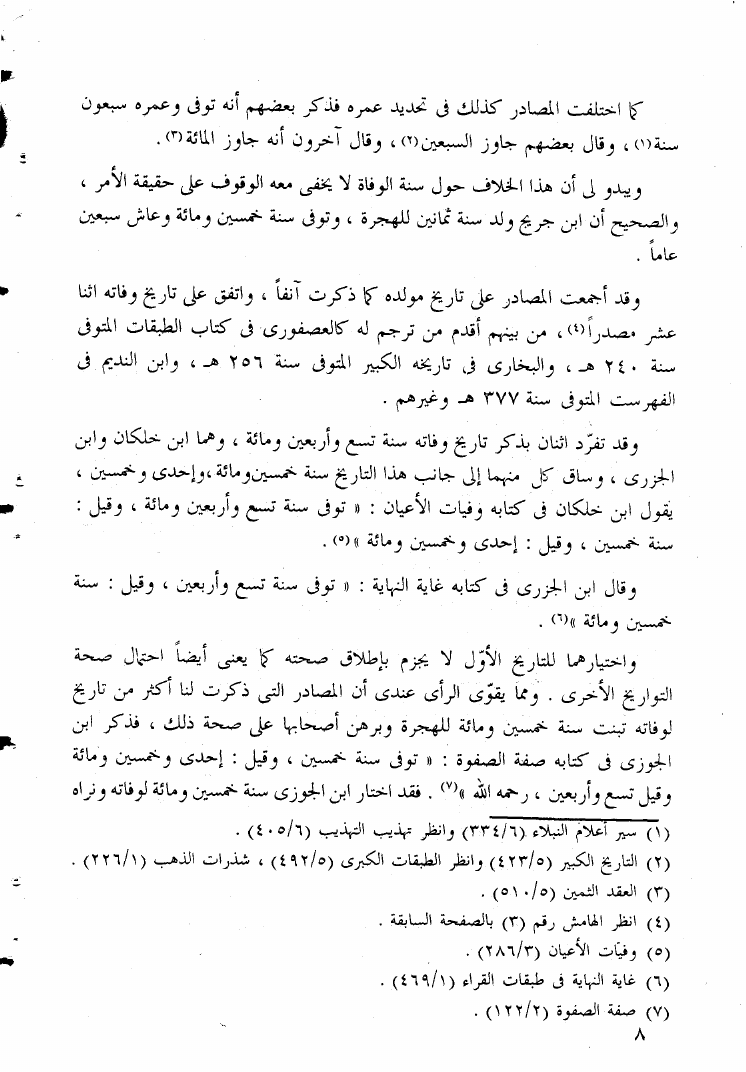 كما اختلفت المصادر كذلك فى تحديد عمره فذكر بعضهم أنه توفى وعمره سبعون
سنة(١) ، وقال بعضهم جاوز السبعين(٢) ، وقال آخرون أنه جاوز المائة(٣) .
ويبدو لى أن هذا الخلاف حول سنة الوفاة لا يخفى معه الوقوف على حقيقة الأمر ،
والصحيح أن ابن جريج ولد سنة ثمانين للهجرة ، وتوفى سنة خمسين ومائة وعاش سبعين
عاماً .
وقد أجمعت المصادر على تاريخ مولده كما ذكرت آنفاً ، واتفق على تاريخ وفاته اثنا
عشر مصدراً(٤) ، من بينهم أقدم من ترجم له كالعصفورى فى كتاب الطبقات المتوفى
سنة ٢٤٠ هـ ، والبخارى فى تاريخه الكبير المتوفى سنة ٢٥٦ هـ ، وابن النديم فى
الفهرست المتوفى سنة ٣٧٧ هـ وغيرهم .
وقد تفرّد اثنان بذكر تاريخ وفاته سنة تسع وأربعين ومائة ، وهما ابن خلكان وابن
الجزرى ، وساق كل منهما إلى جانب هذا التاريخ سنة خمسين ومائة ، وإحدى وخمسين ،
يقول ابن خلكان فى كتابه وفيات الأعيان : « توفى سنة تسع وأربعين ومائة ، وقيل :
سنة خمسين ، وقيل : إحدى وخمسين ومائة »(٥) .
وقال ابن الجزرى فى كتابه غاية النهاية : « توفى سنة تسع وأربعين ، وقيل : سنة
خمسين ومائة »(٦) .
واختيارهما للتاريخ الأوّل لا يجزم بإطلاق صحته كما يعنى أيضاً احتمال صحة
التواريخ الأخرى . ومما يقوّى الرأى عندى أن المصادر التى ذكرت لنا أكثر من تاريخ
لوفاته تبنت سنة خمسين ومائة للهجرة وبرهن أصحابها على صحة ذلك ، فذكر ابن
الجوزى فى كتابه صفة الصفوة : « توفى سنة خمسين ، وقيل : إحدى وخمسين ومائة
وقيل تسع وأربعين ، رحمه الله »(٧) . فقد اختار ابن الجوزى سنة خمسين ومائة لوفاته ونراه
(١) سير أعلام النبلاء (٣٣٤/٦) وانظر تهذيب التهذيب (٤٠٥/٦) .
(٢) التاريخ الكبير (٤٢٣/٥) وانظر الطبقات الكبرى (٤٩٢/٥) ، شذرات الذهب (٢٢٦/١) .
(٣) العقد الثمين (٥١٠/٥) .
(٤) انظر الهامش رقم (٣) بالصفحة السابقة .
(٥) وفيات الأعيان (٢٨٦/٣) .
(٦) غاية النهاية فى طبقات القراء (٤٦٩/١) .
(٧) صفة الصفوة (١٢٢/٢) .
٨